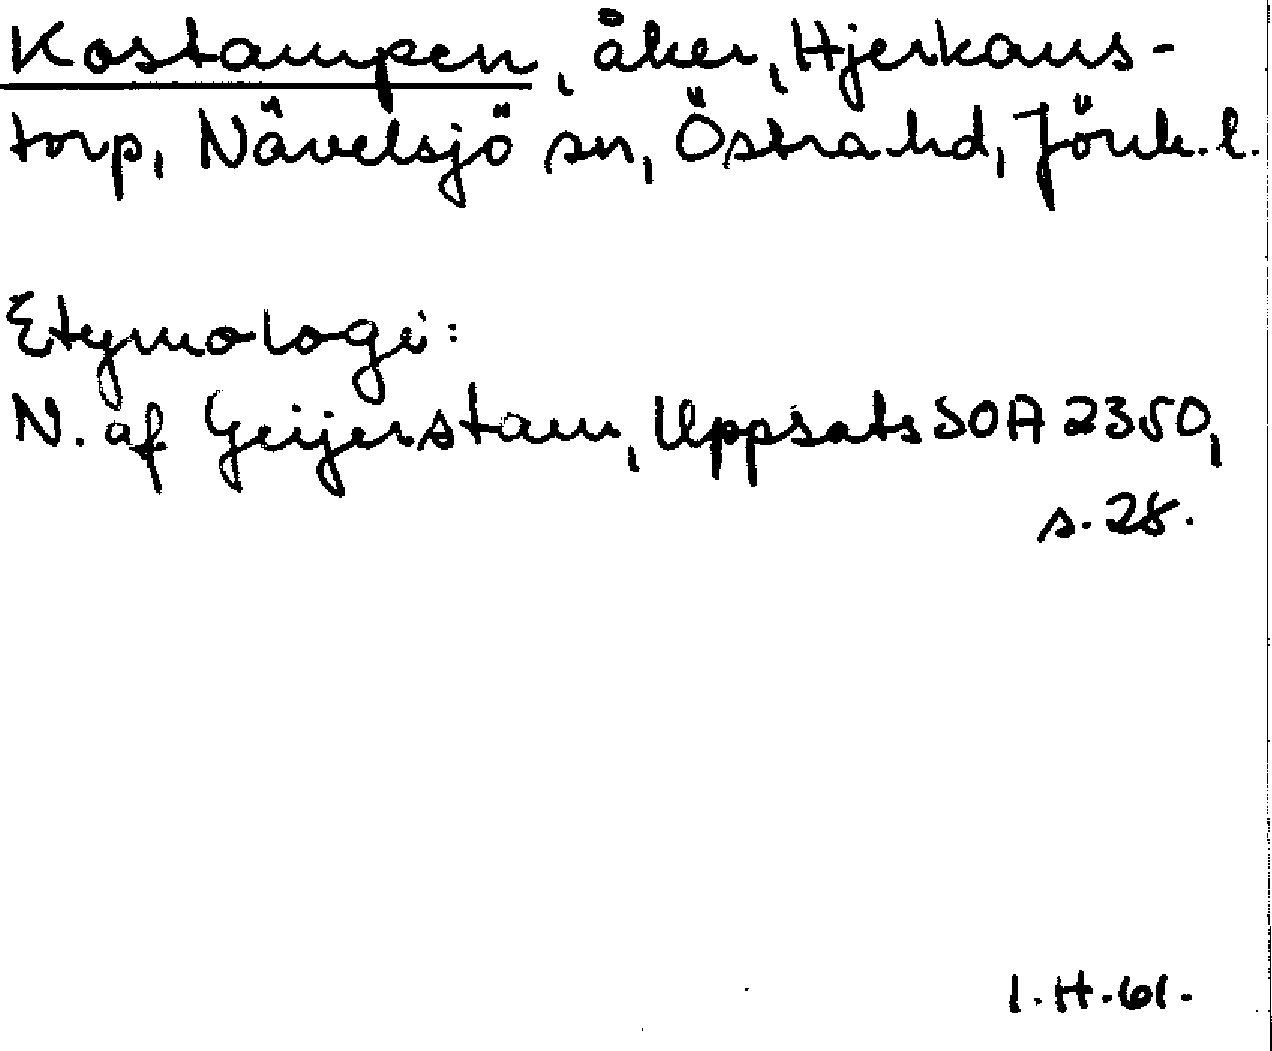 Kostampen, åker, Hjerkans-
torp, Nävelsjö sn, Östra hd, Jönk. l.
Etymologi:
N. af Geijerstam, Uppsats SOA 2350,
s. 28.
I. H. 61.